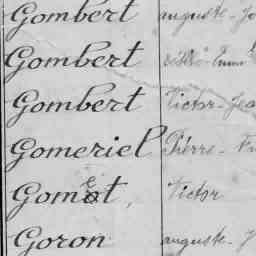 Gombert auguste - Jo
Gombert
Gombert Victor - Jea
Gomeriel Pierre - Fr
Gomot, Victor
Goron auguste - J